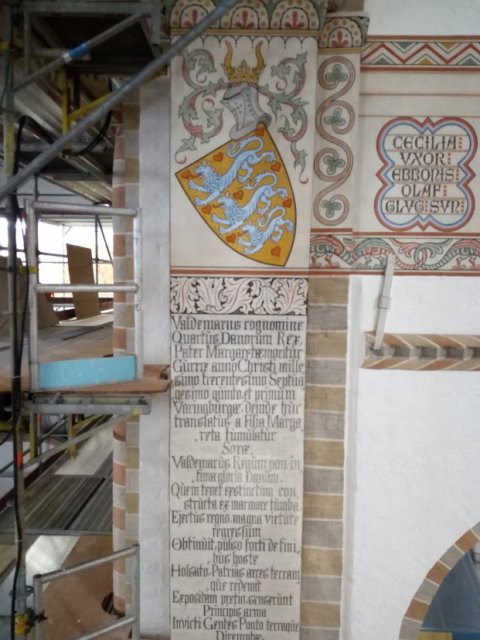 CECILIA:
VXOR
EBBONIS
OLAF
GLVG:SVN
Valdemarus cognomine
Quartus Danorum Rex
Pater Margarethæ moritur
Gurræ anno Christi mille
simo trecentesimo Septua
gesimo quinto et primum
Voringburgæ deinde huc
translatus a Filia Marga
reta tumulatur
Soræ.
Valdemarus Regum non in
fima gloria Danum,
Quem tenet exstinctum con
structa ex marmore tumba.
Ejectus regno, magna virtute
regressum
Obtinuit, pulso forti de fini
bus hoste
Holsato, Patrias arces terram
que redemit
Expositam pretio, senserunt
Principis arma
Invicti Gentes Ponto terraque